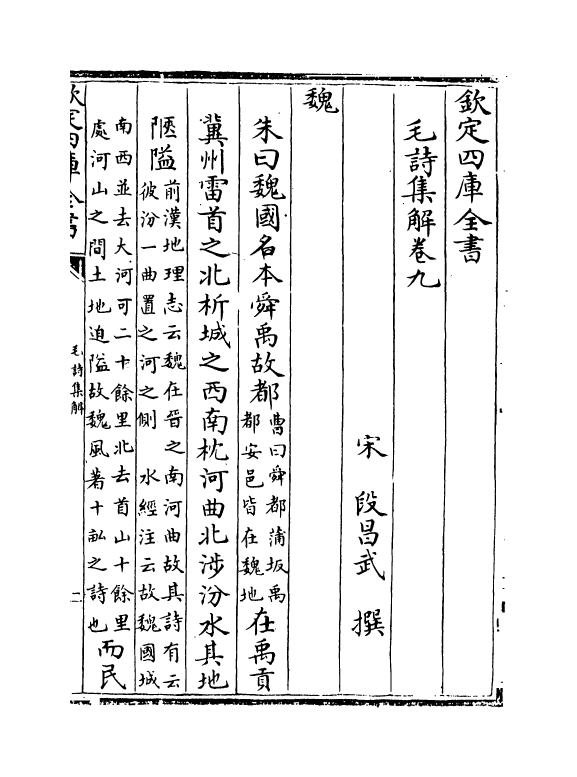 欽定四庫全書
毛詩集解卷九
宋　段昌武　撰
魏
朱曰魏國名本舜禹故都曹曰舜都蒲坂禹都安邑皆在魏地在禹貢
冀州雷首之北析城之西南枕河曲北涉汾水其地
陿隘前漢地理志云魏在晉之南河曲故其詩有云彼汾一曲置之河之側　水經注云故魏國城
南西並去大河可二十餘里北去首山十餘里處河山之間土地迫隘故魏風著十畝之詩也而民
欽定四庫全書
毛詩集解